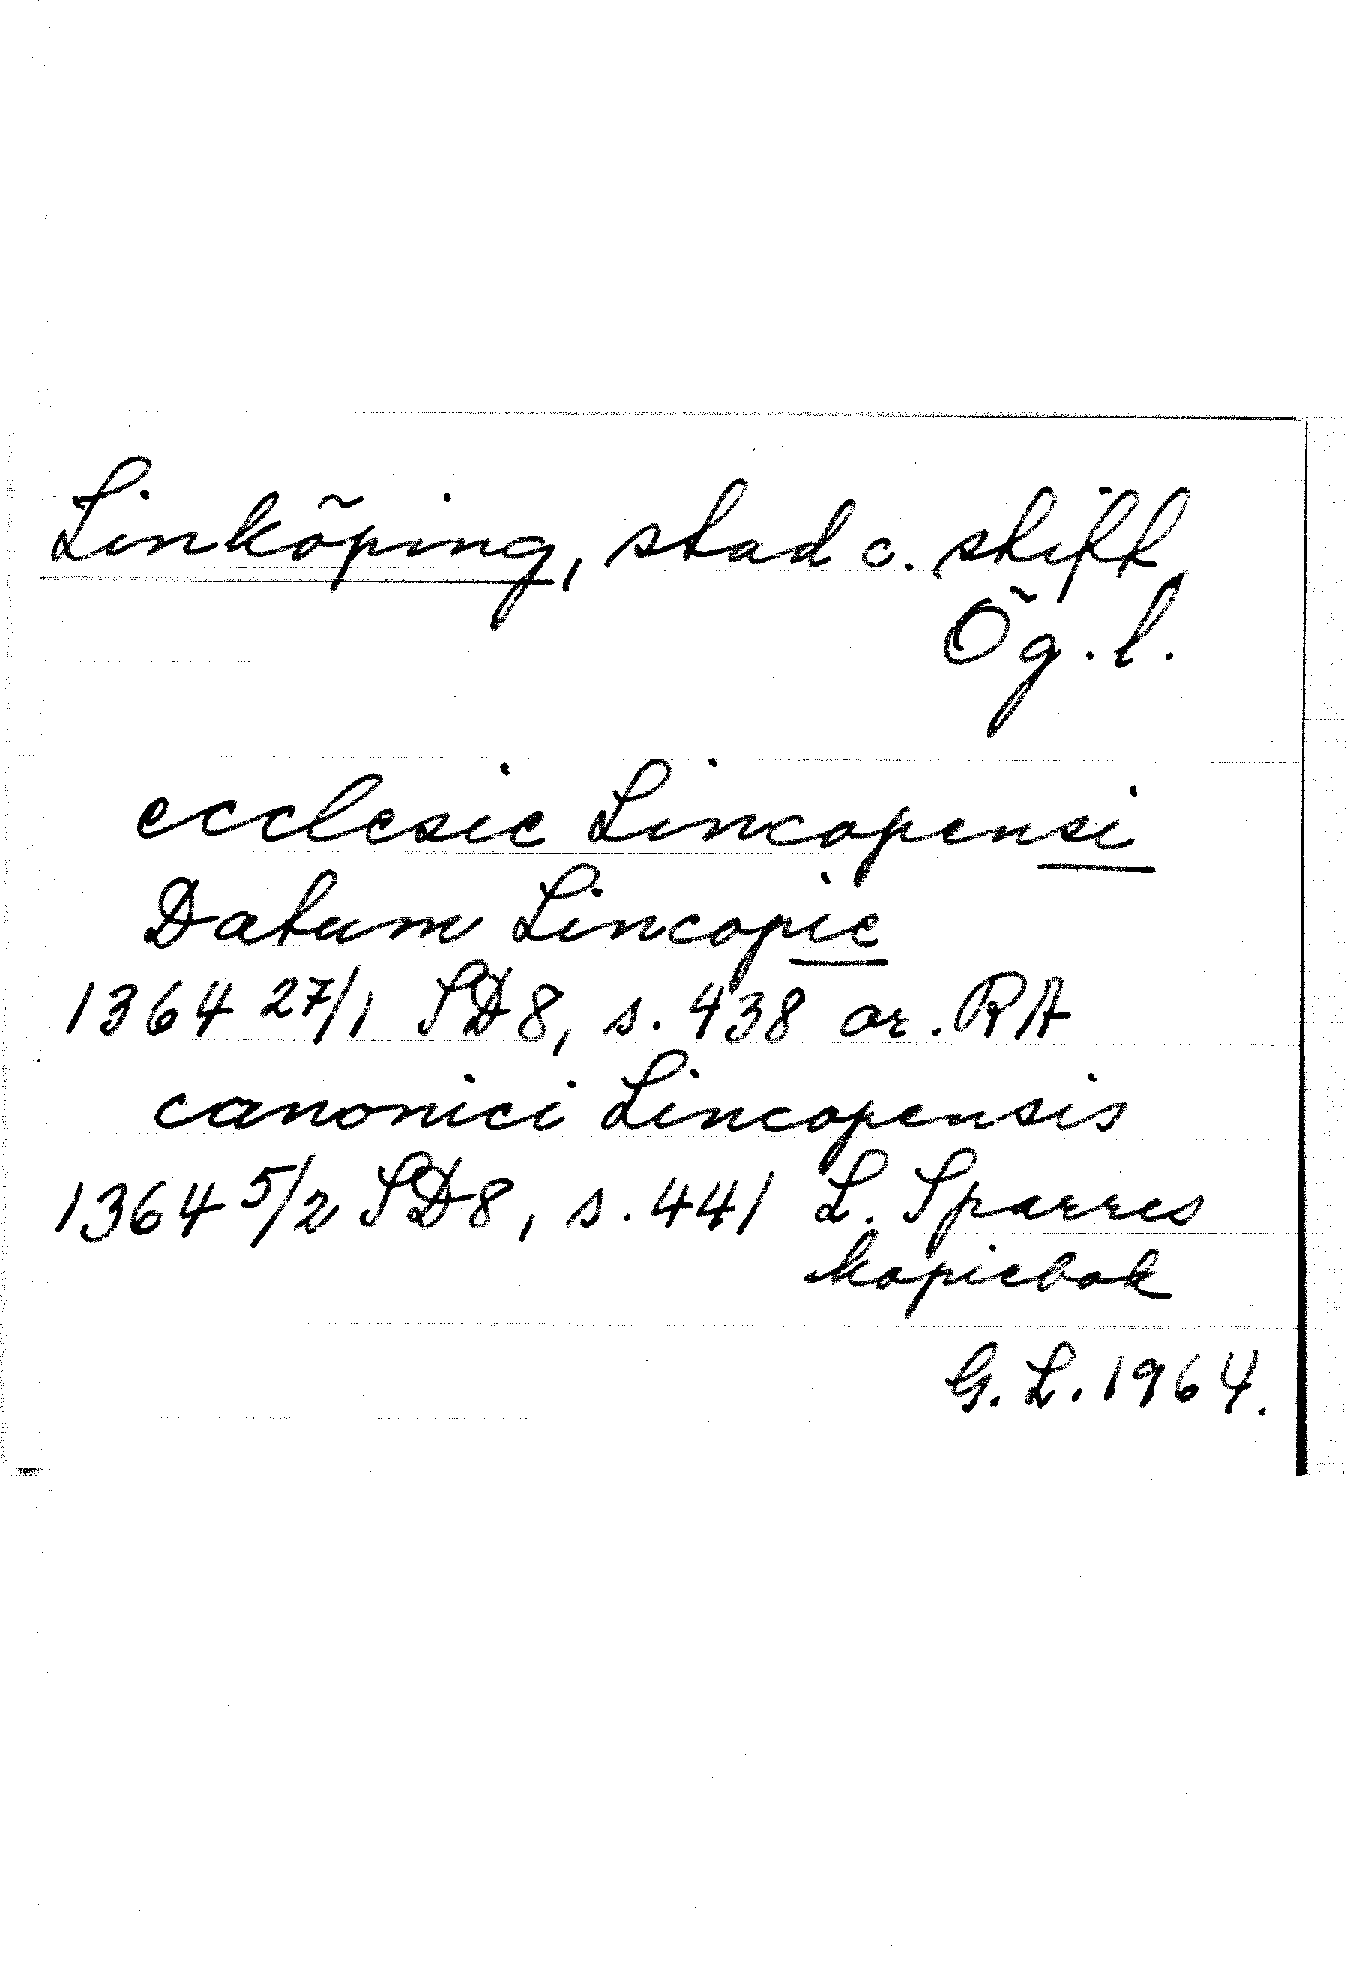 Linköping, stad o. stift,
Ög.l.
ecclesie Lincopensi
Datum Lincopie
1364 27/1 SD8, s. 438 or. RA
canonici Lincopensis
1364 5/2 SD8, s. 441 L. Sparres
kopiebok
G. L. 1964.